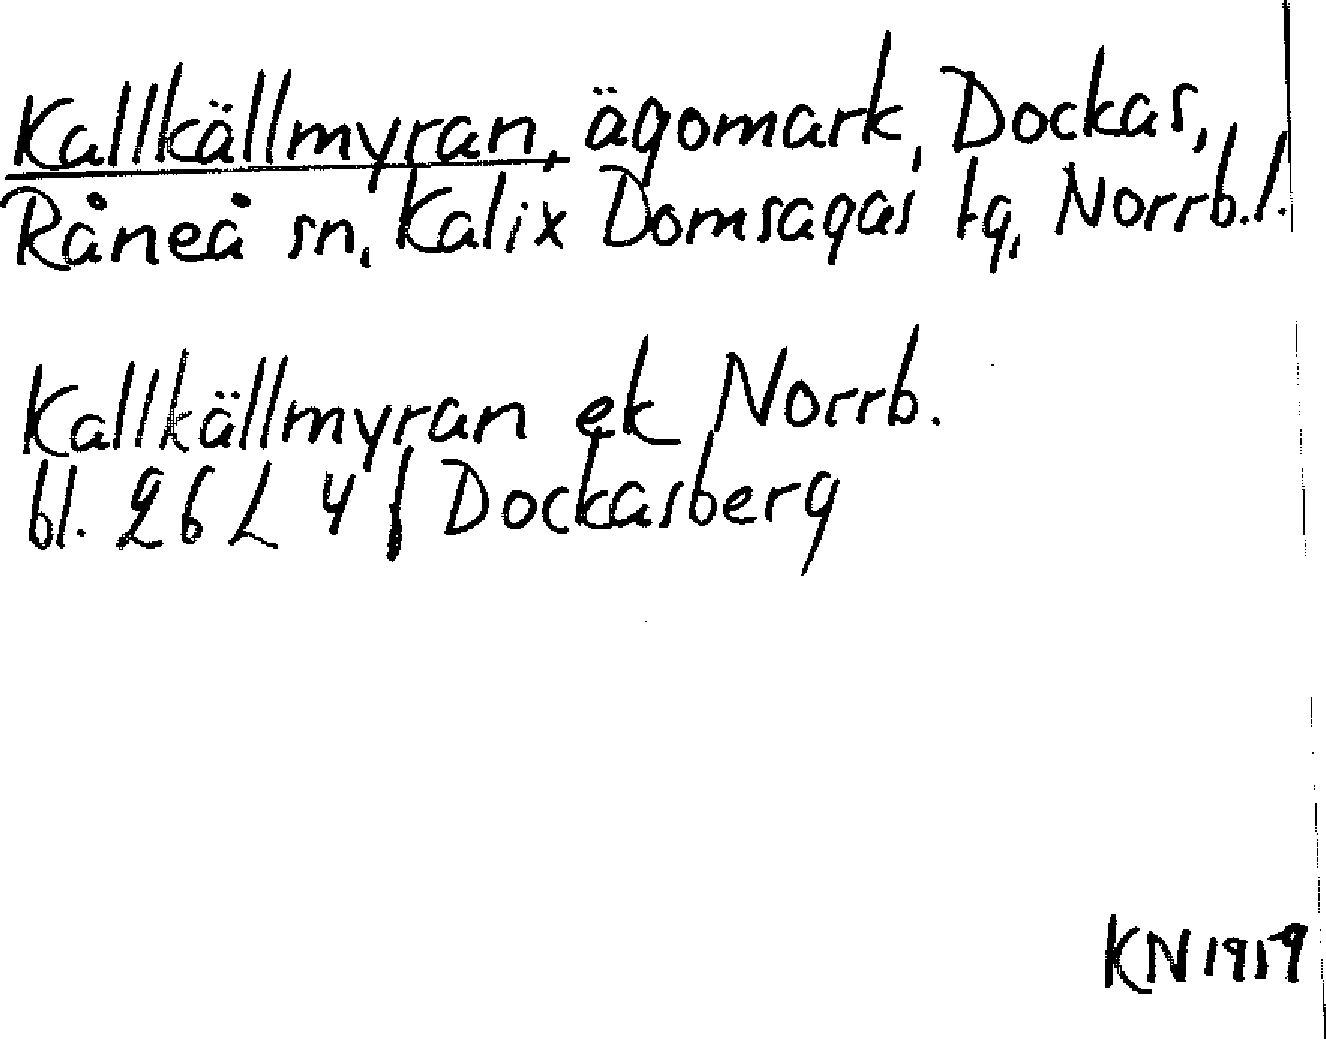 Kallkällmyran, ägomark, Dockas,
Råneå sn, Kalix Domsagas tg, Norrb. l.
Kallkällmyran ek Norrb.
bl. 26 L 4 f Dockasberg
KN 1919